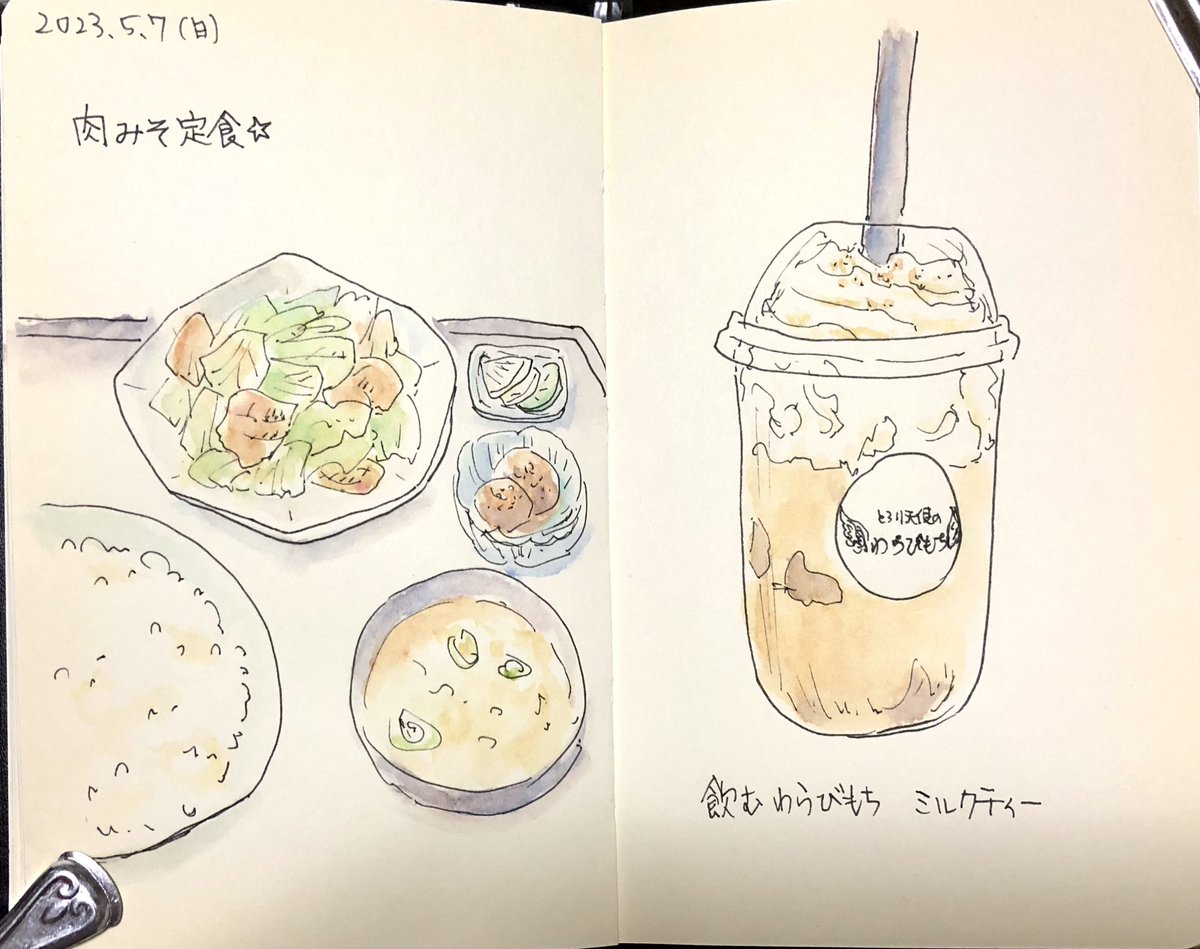 2023.5.7(日)
肉みそ定食☆
とろり天使の
わらびもち
飲むわらびもち ミルクティー